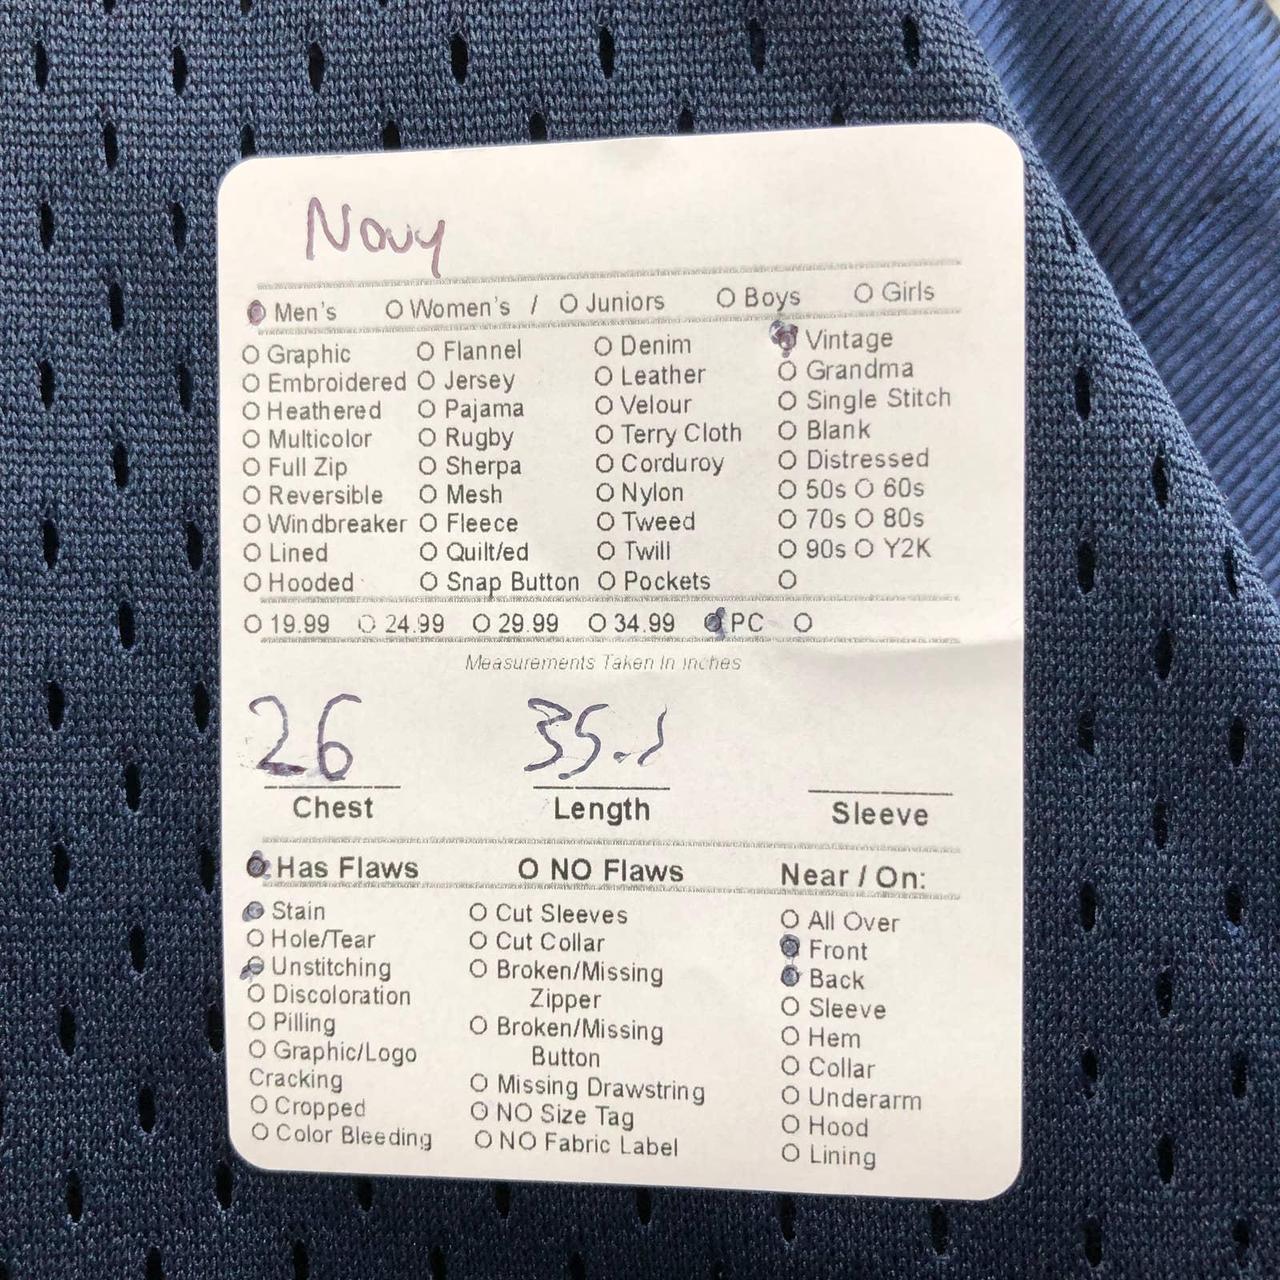 Navy
Men's Women's / Juniors Boys Girls
Graphic Flannel Denim Vintage
Embroidered Jersey Leather Grandma
Heathered Pajama Velour Single Stitch
Multicolor Rugby Terry Cloth Blank
Full Zip Sherpa Corduroy Distressed
Reversible Mesh Nylon 50s 60s
Windbreaker Fleece Tweed 70s 80s
Lined Quilt/ed Twill 90s Y2K
Hooded Snap Button Pockets
19.99 24.99 29.99 34.99 PC
Measurements Taken In Inches
26 35.1
Chest Length Sleeve
Has Flaws NO Flaws Near / On:
Stain Cut Sleeves All Over
Hole/Tear Cut Collar Front
Unstitching Broken/Missing Back
Discoloration Zipper Sleeve
Pilling Broken/Missing Hem
Graphic/Logo Button Collar
Cracking Missing Drawstring Underarm
Cropped NO Size Tag Hood
Color Bleeding NO Fabric Label Lining